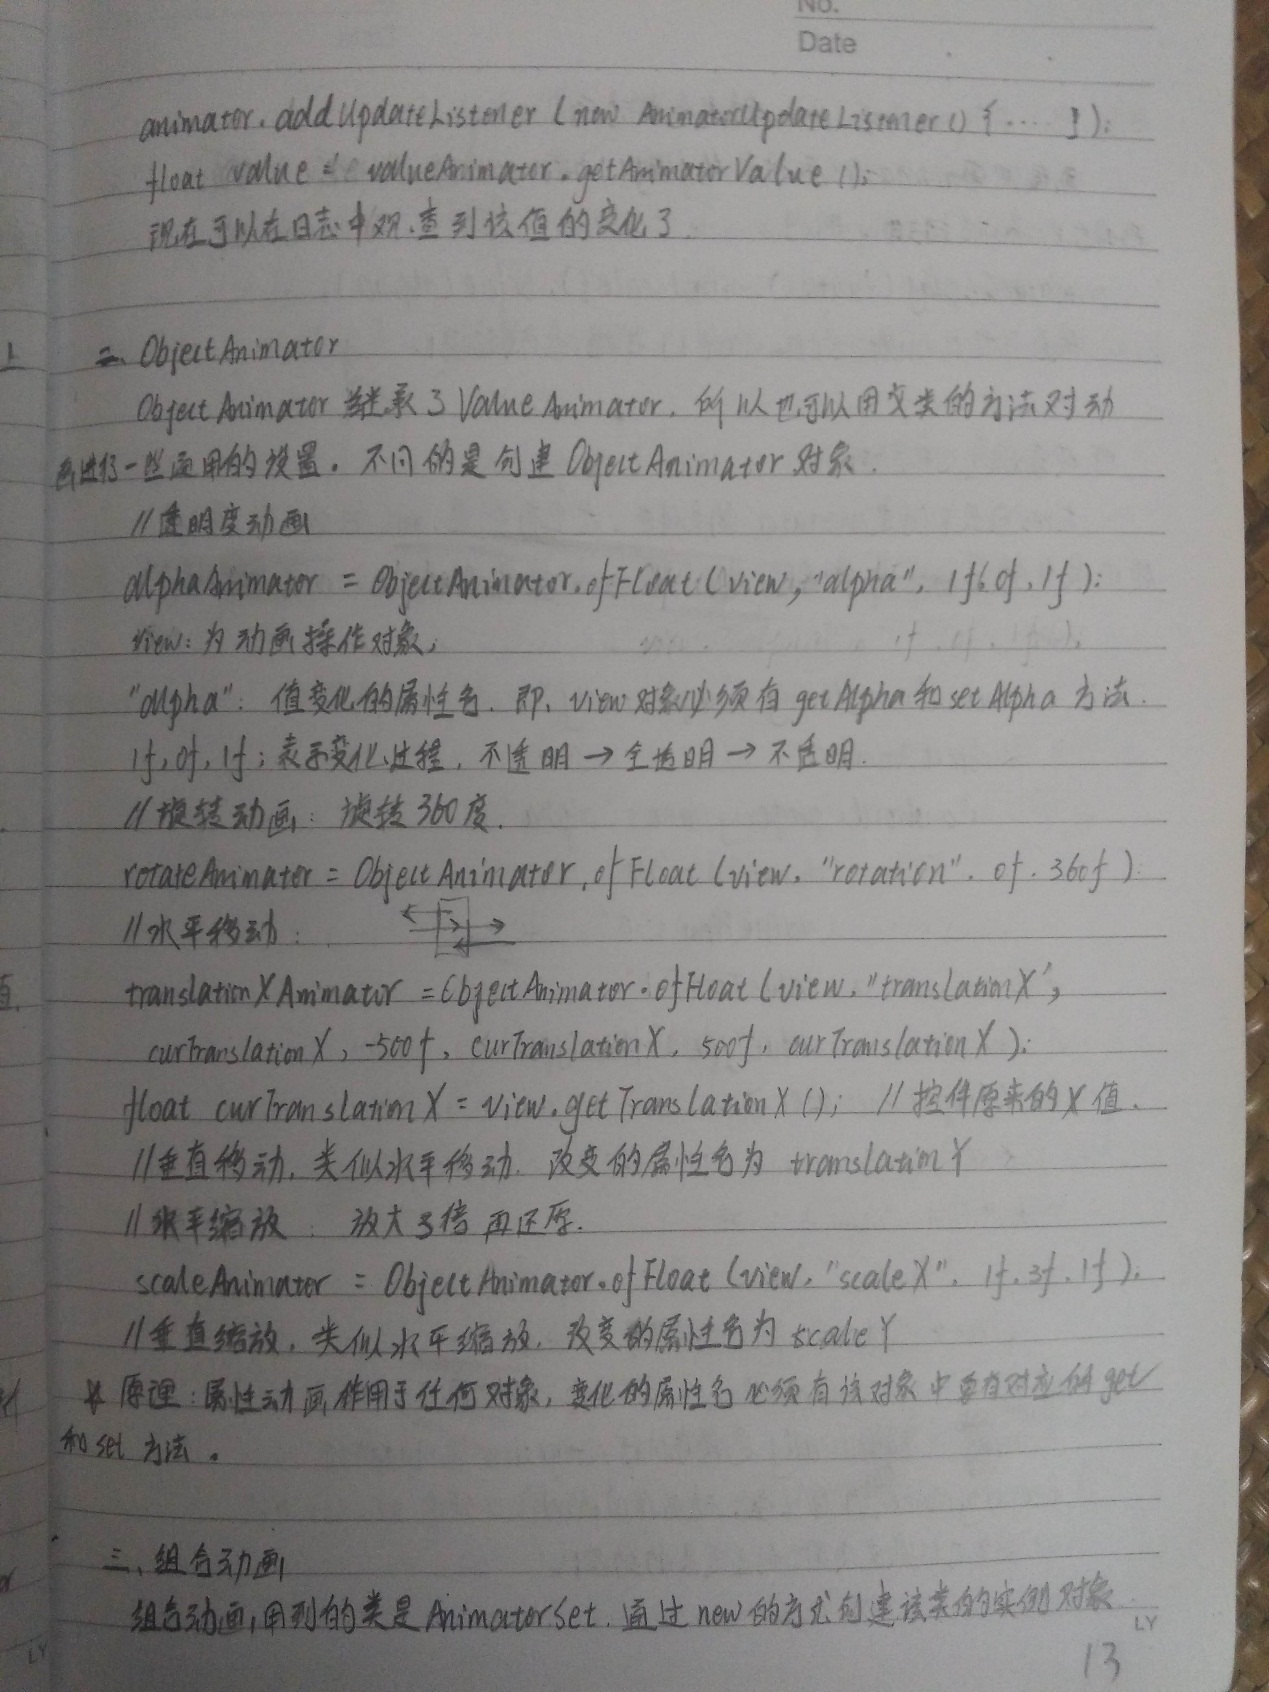 No.
Date
animator.addUpdateListener (new AnimatorUpdateListener() { .... });
float value = valueAnimator.getAnimatorValue();
现在可以在日志中观查到该值的变化了
二、ObjectAnimator
ObjectAnimator 继承了 ValueAnimator, 所以也可以用父类的方法对动
画进行一些通用的设置。不同的是创建 ObjectAnimator 对象.
//透明度动画
alphaAnimator = ObjectAnimator.ofFloat (view, "alpha", 1f, 0f, 1f);
view: 为动画操作对象;
"alpha": 值变化的属性名. 即, view 对象必须有 getAlpha 和 setAlpha 方法.
1f, 0f, 1f: 表示变化过程, 不透明 → 全透明 → 不透明.
//旋转动画: 旋转 360 度.
rotateAnimator = ObjectAnimator.ofFloat (view, "rotation", 0f, 360f)
//水平移动:
translationXAnimator = ObjectAnimator.ofFloat (view, "translationX",
curTranslationX, -500f, curTranslationX, 500f, curTranslationX);
float curTranslationX = view.getTranslationX(); //控件原来的X值.
//垂直移动, 类似水平移动. 改变的属性名为 translationY
//水平缩放: 放大3倍再还原.
scaleAnimator = ObjectAnimator.ofFloat (view, "scaleX", 1f, 3f, 1f);
//垂直缩放, 类似水平缩放, 改变的属性名为 scaleY
* 原理: 属性动画作用于任何对象, 变化的属性名必须有该对象中要有对应的 get
和 set 方法。
三、组合动画
组合动画, 用到的类是 AnimatorSet. 通过 new 的方式创建该类的实例对象
LY
13